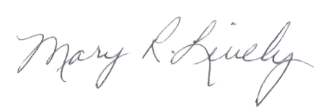 Mary R. Lively